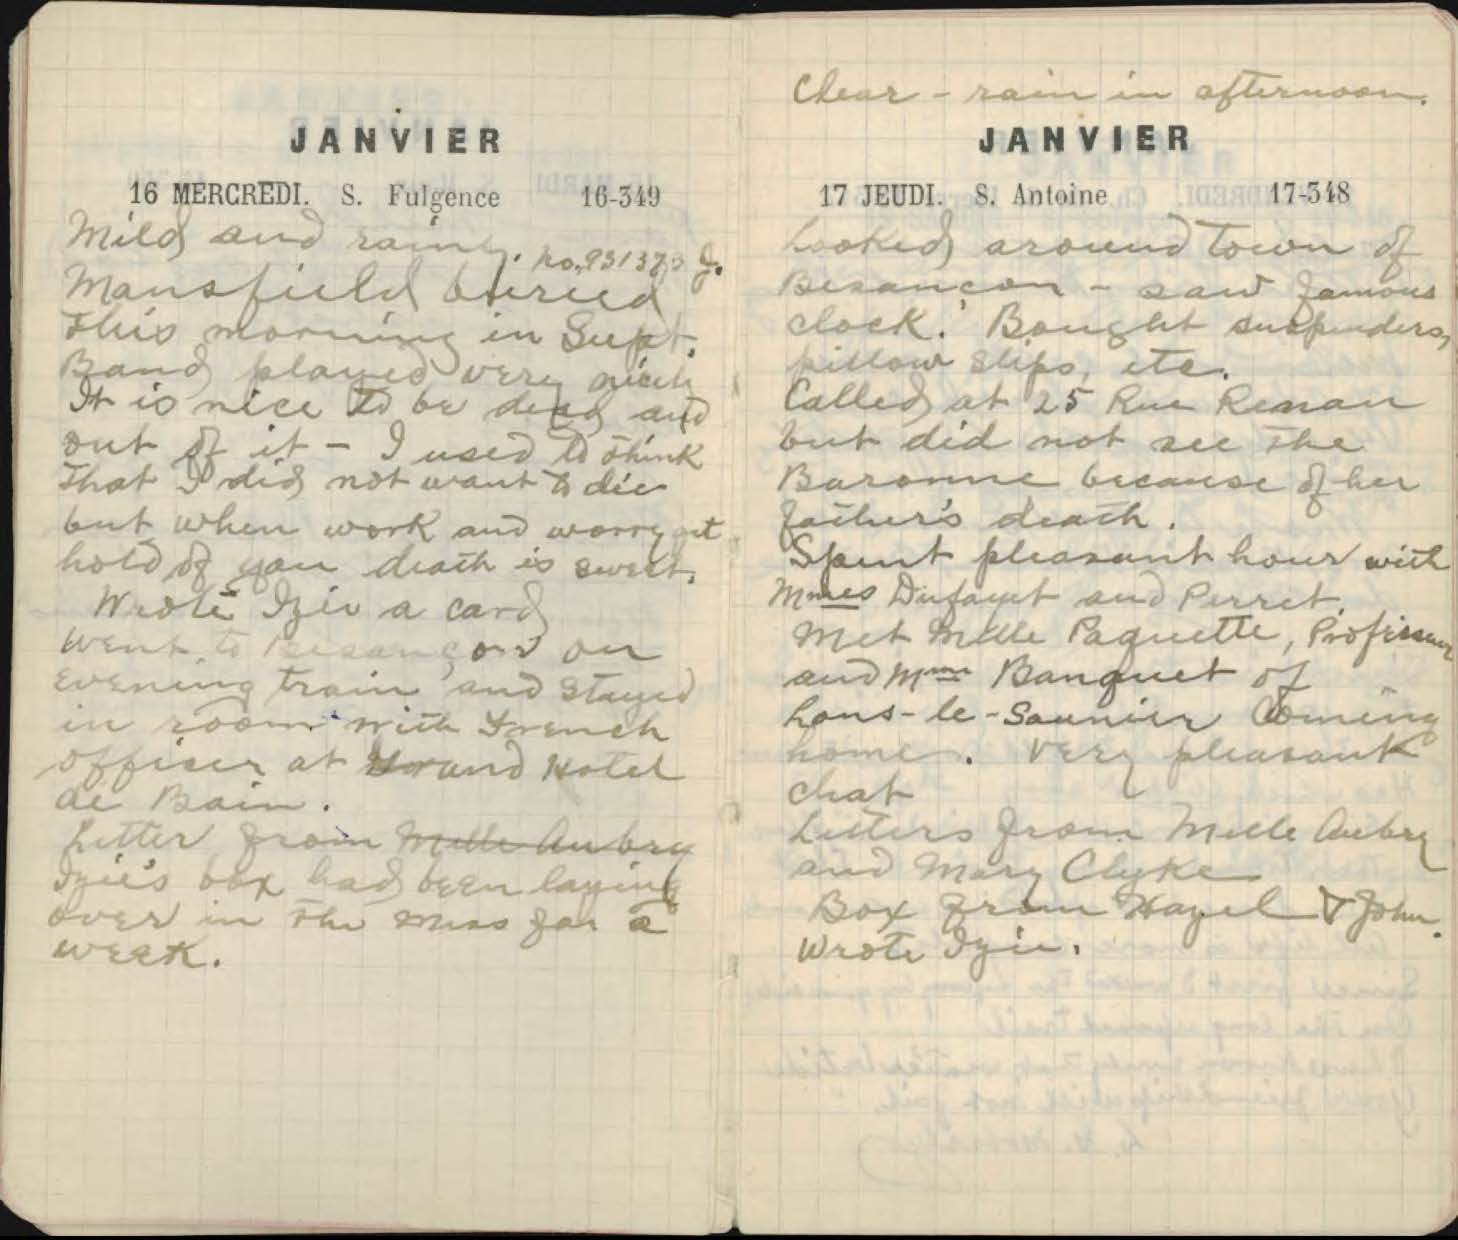 JANVIER
16 MERCREDI. S. Fulgence 16-349
Mild and rainy. No. 931373 J.
Mansfield buried
this morning in Sept.
Band played very nicely
It is nice to be dead and
out of it – I used to think
that I did not want to die
but when work and worry get
hold of you death is sweet.
Wrote Izie a card
Went to Besançon on
evening train and stayed
in room with French
officer at Grand Hotel
de Bain.
Letter from Melle Aubry
Izie's box had been laying
over in the mess for a
week.
Clear – rain in afternoon.
JANVIER
17 JEUDI. S. Antoine 17-348
Looked around town of
Besancon – saw famous
clock. Bought suspenders,
pillow slips, etc.
Called at 25 Rue Renan
but did not see the
Baronne because of her
father's death.
Spent pleasant hour with
Mmes Dufayet and Perret.
Met Melle Paquette, Professeur
and Mme Banquet of
Lons-le-Saunier Coming
home. Very pleasant
chat
Letters from Melle Aubry
and Mary Clyke
Box from Hazel & John.
Wrote Izie.